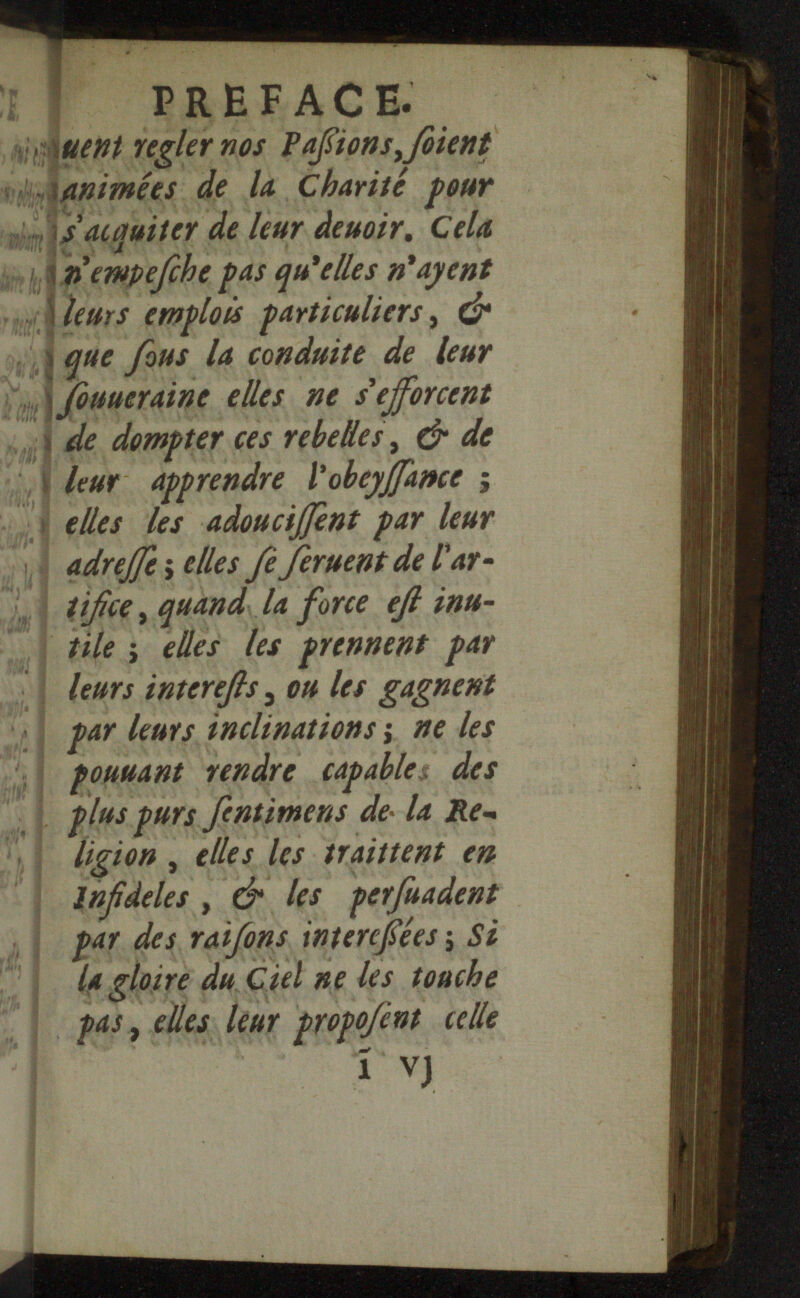 PREFACE.
uent regler nos Paſsions, ſoient
animées de la Charité pour
s'acquiter de leur deuoir. Cela
n'empeſche pas qu'elles n'ayent
leurs emplois particuliers, &
que ſous la conduite de leur
ſouueraine elles ne s'efforcent
de dompter ces rebelles, & de
leur apprendre l'obeyſſance ;
elles les adouciſſent par leur
adreſſe ; elles ſe ſeruent de l'ar-
tifice, quand la force eſt inu-
tile ; elles les prennent par
leurs intereſts, ou les gagnent
par leurs inclinations ; ne les
pouuant rendre capables des
plus purs ſentimens de la Re-
ligion, elles les traittent en
Infideles, & les perſuadent
par des raiſons intereſſées ; Si
la gloire du Ciel ne les touche
pas, elles leur propoſent celle
ĩ vj